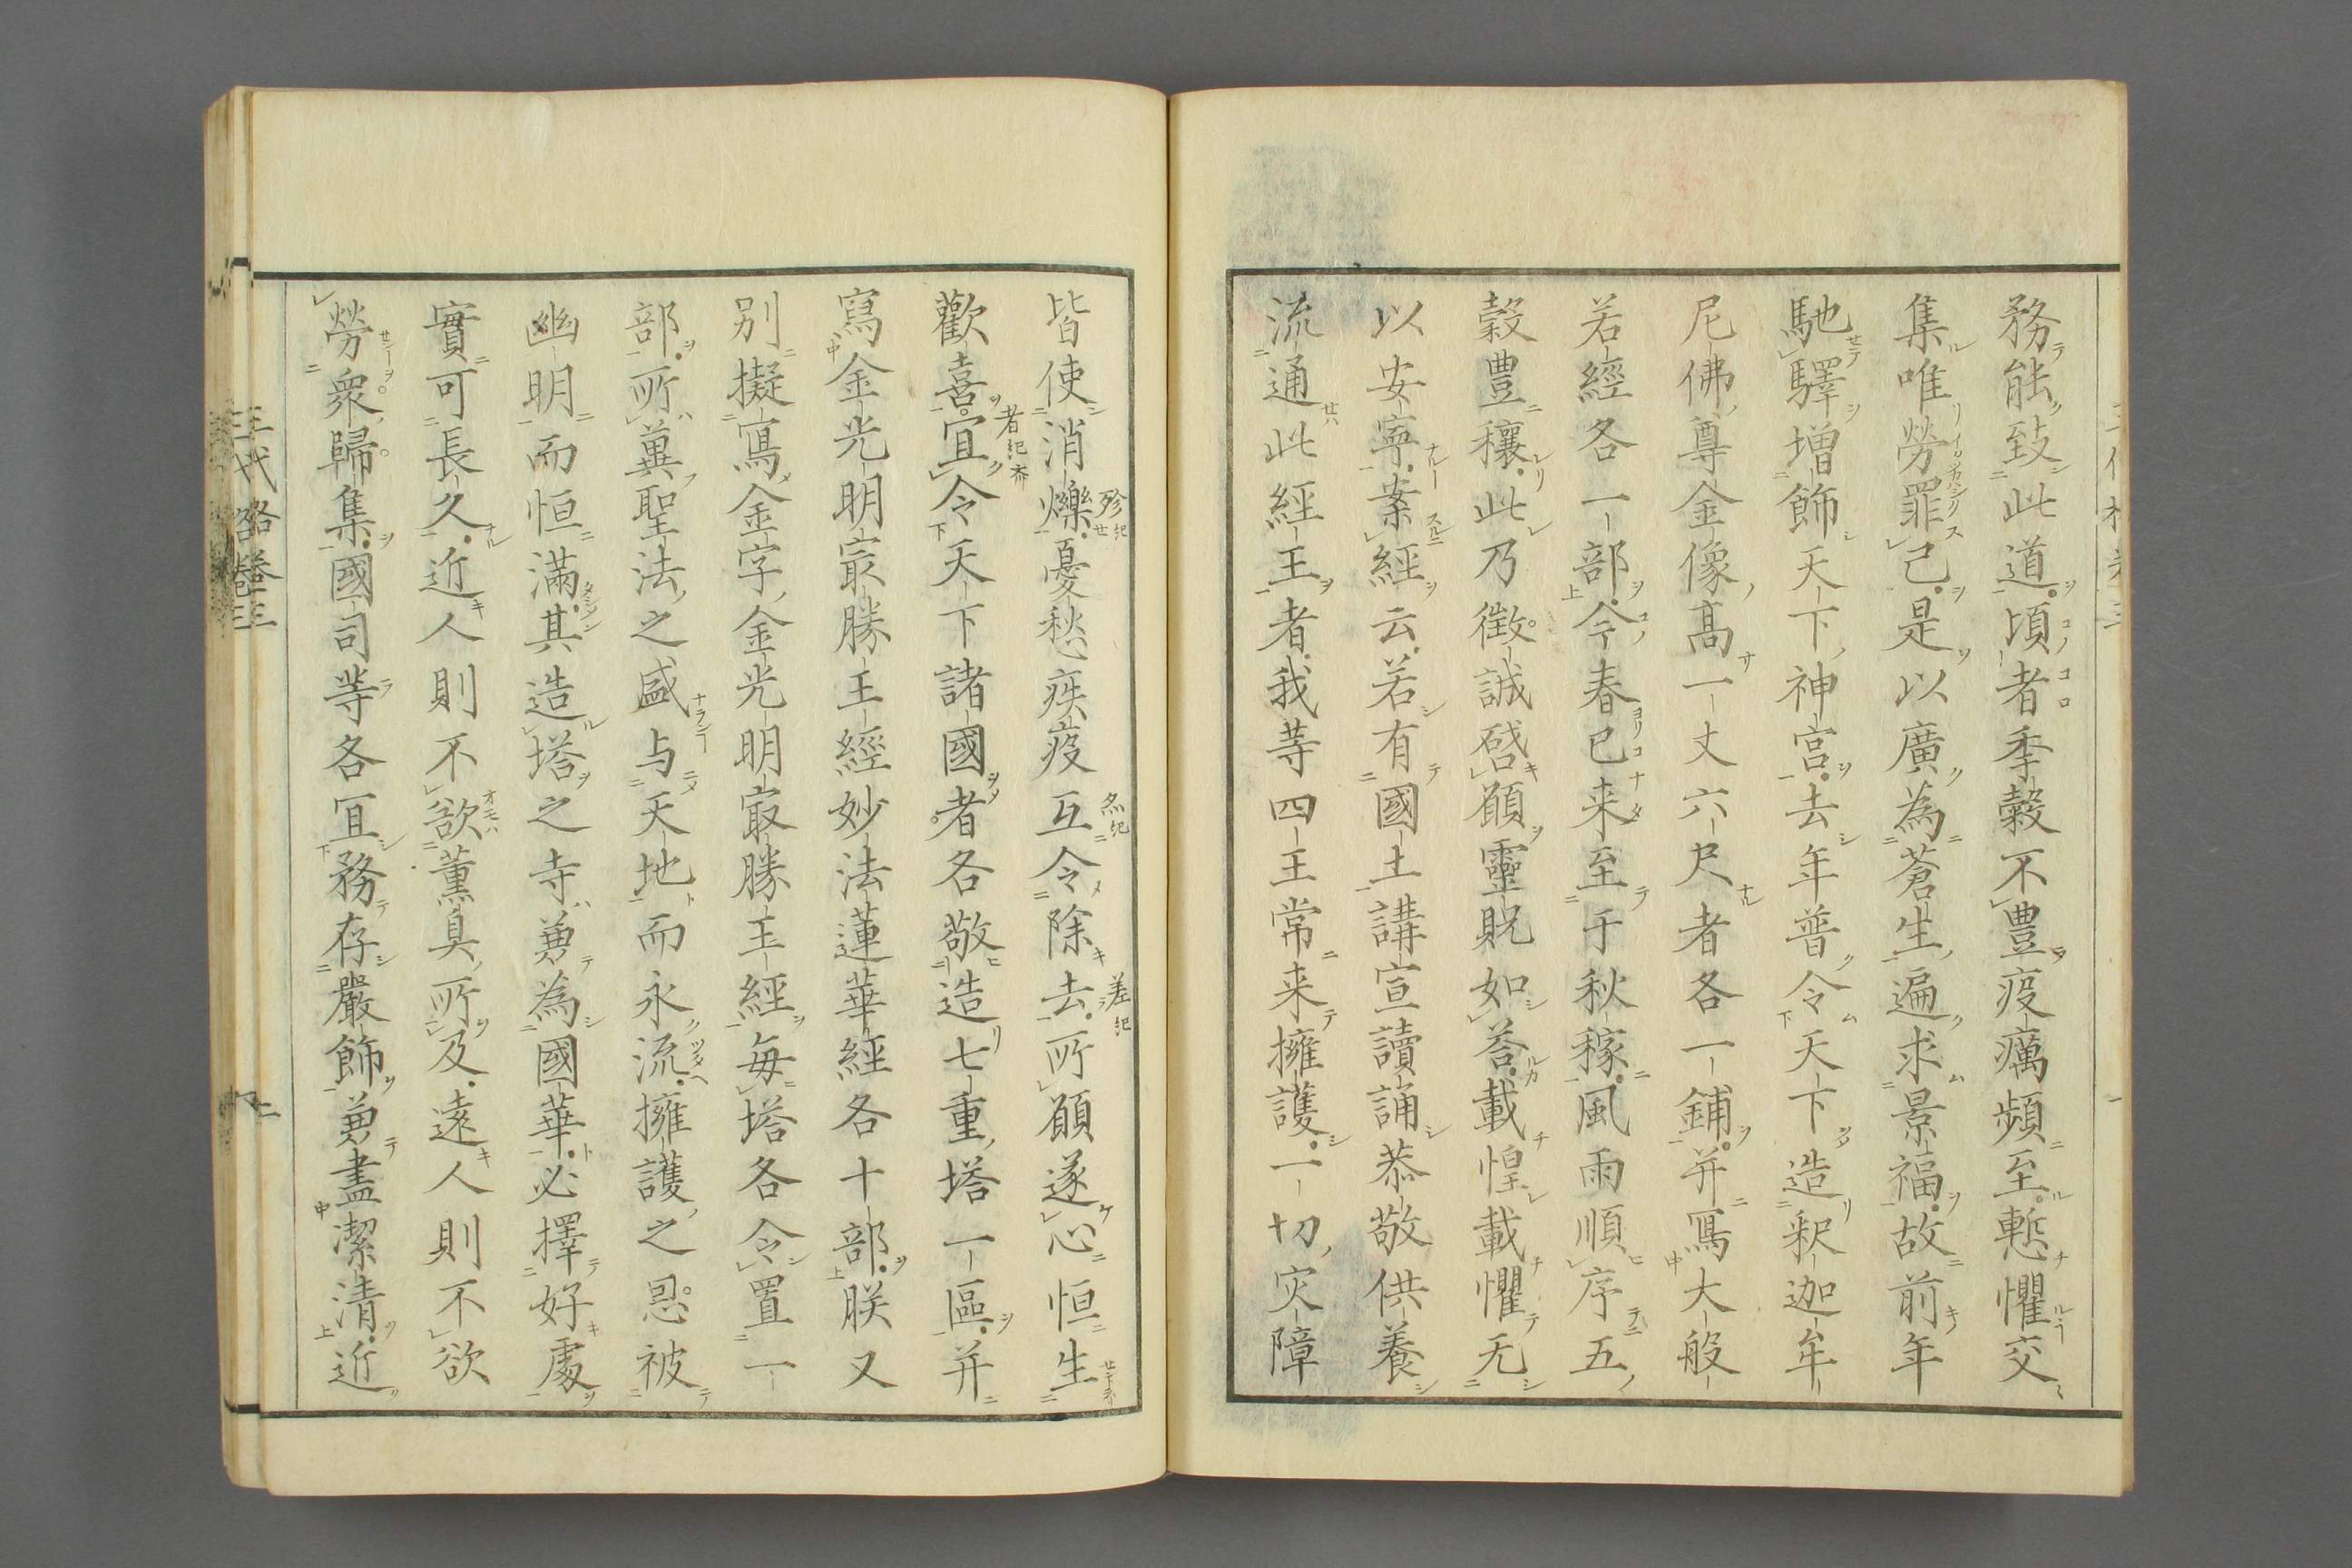 務能致此道頃者季穀不豊疫癘頻至慙懼交
集唯勞罪己是以廣為蒼生遍求景福故前年
馳驛增飾天下神宮去年普令天下造釈迦牟
尼佛尊金像高一丈六尺者各一鋪并寫大般
若經各一部今春已来至于秋稼風雨順序五
穀豊穰此乃徴誠啓願靈貺如荅載惶載懼无
以安寧案經云若有國土講宣讀誦恭敬供養
流通此經王者我等四王常来擁護一切灾障
皆使消爍憂愁疾疫互令除去所願遂心恒生
歡喜宜令天下諸國者各敬造七重塔一區并
寫金光明冣勝王經妙法蓮華經各十部朕又
别擬寫金字金光明冣勝王經每塔各令置一
部所冀聖法之盛与天地而永流擁護之恩被
幽明而恒滿其造塔之寺兼為國華必擇好處
實可長久近人則不欲薫臭所及遠人則不欲
勞衆歸集國司等各宜務存嚴飾兼盡潔清近
三代格巻三
二